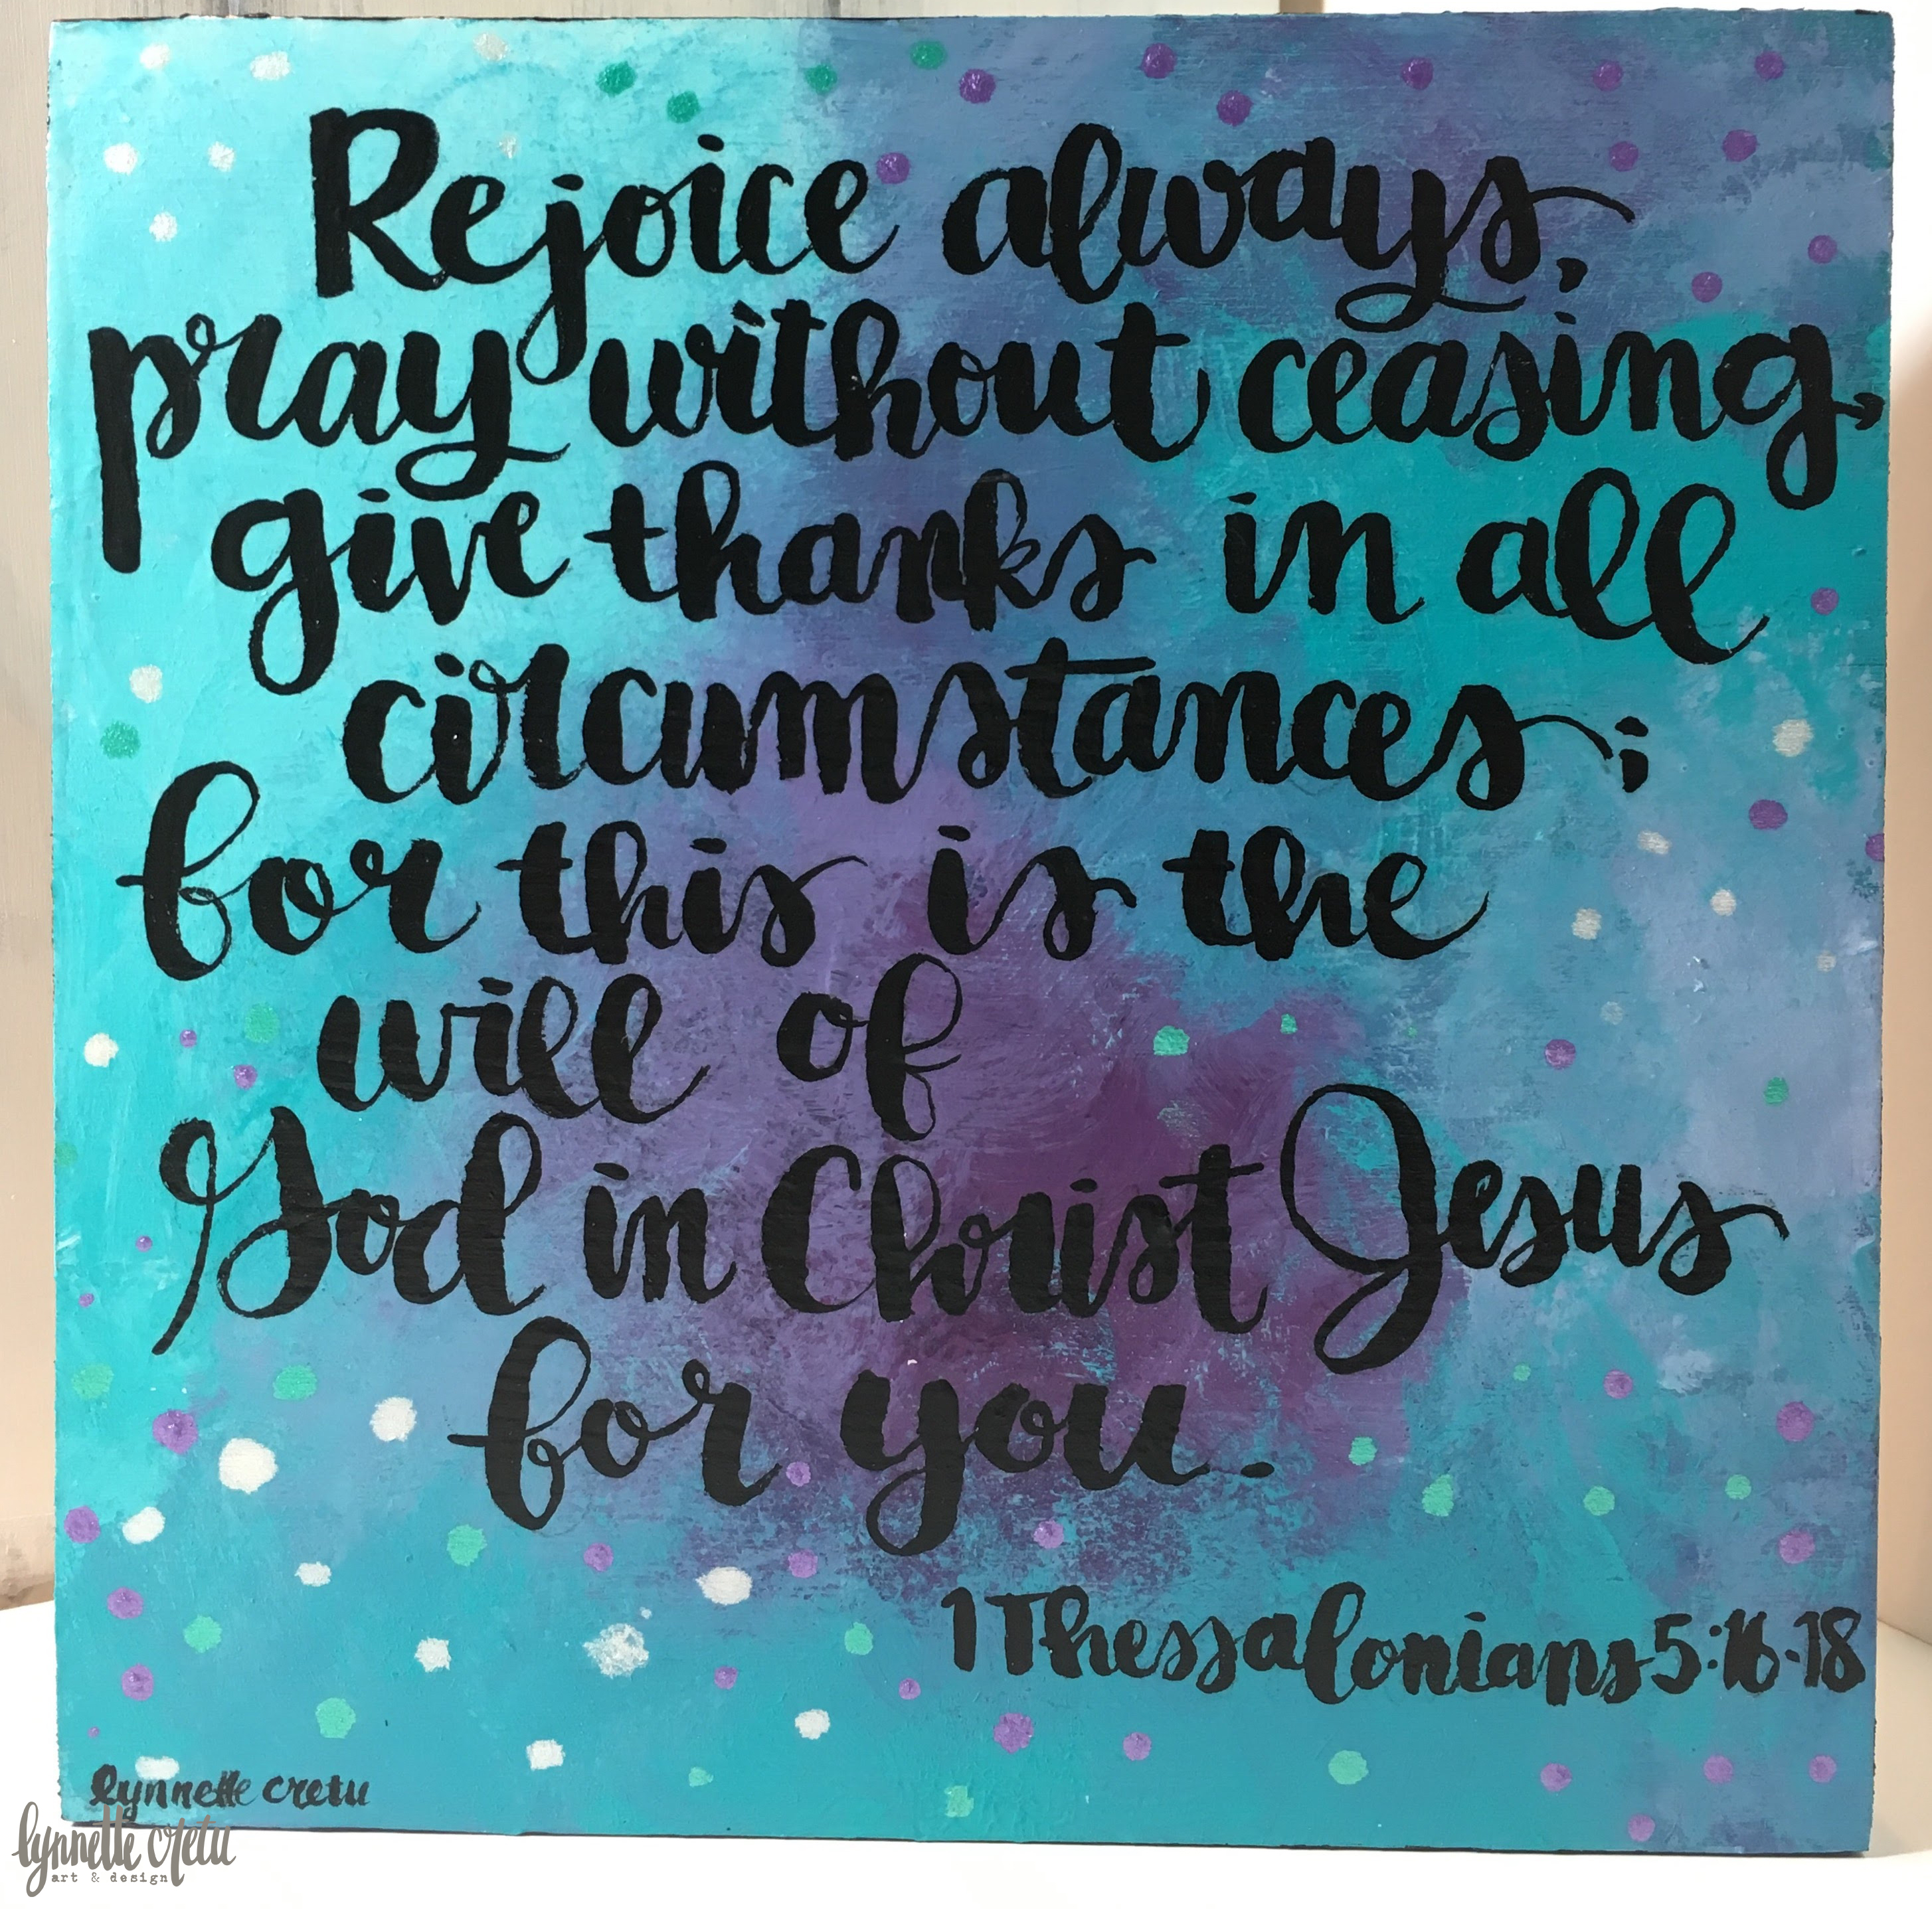 Rejoice always,
pray without ceasing,
give thanks in all
circumstances;
for this is the
will of
God in Christ Jesus
for you.
1 Thessalonians 5:16-18
lynnette cretu
lynnette cretu
art & design